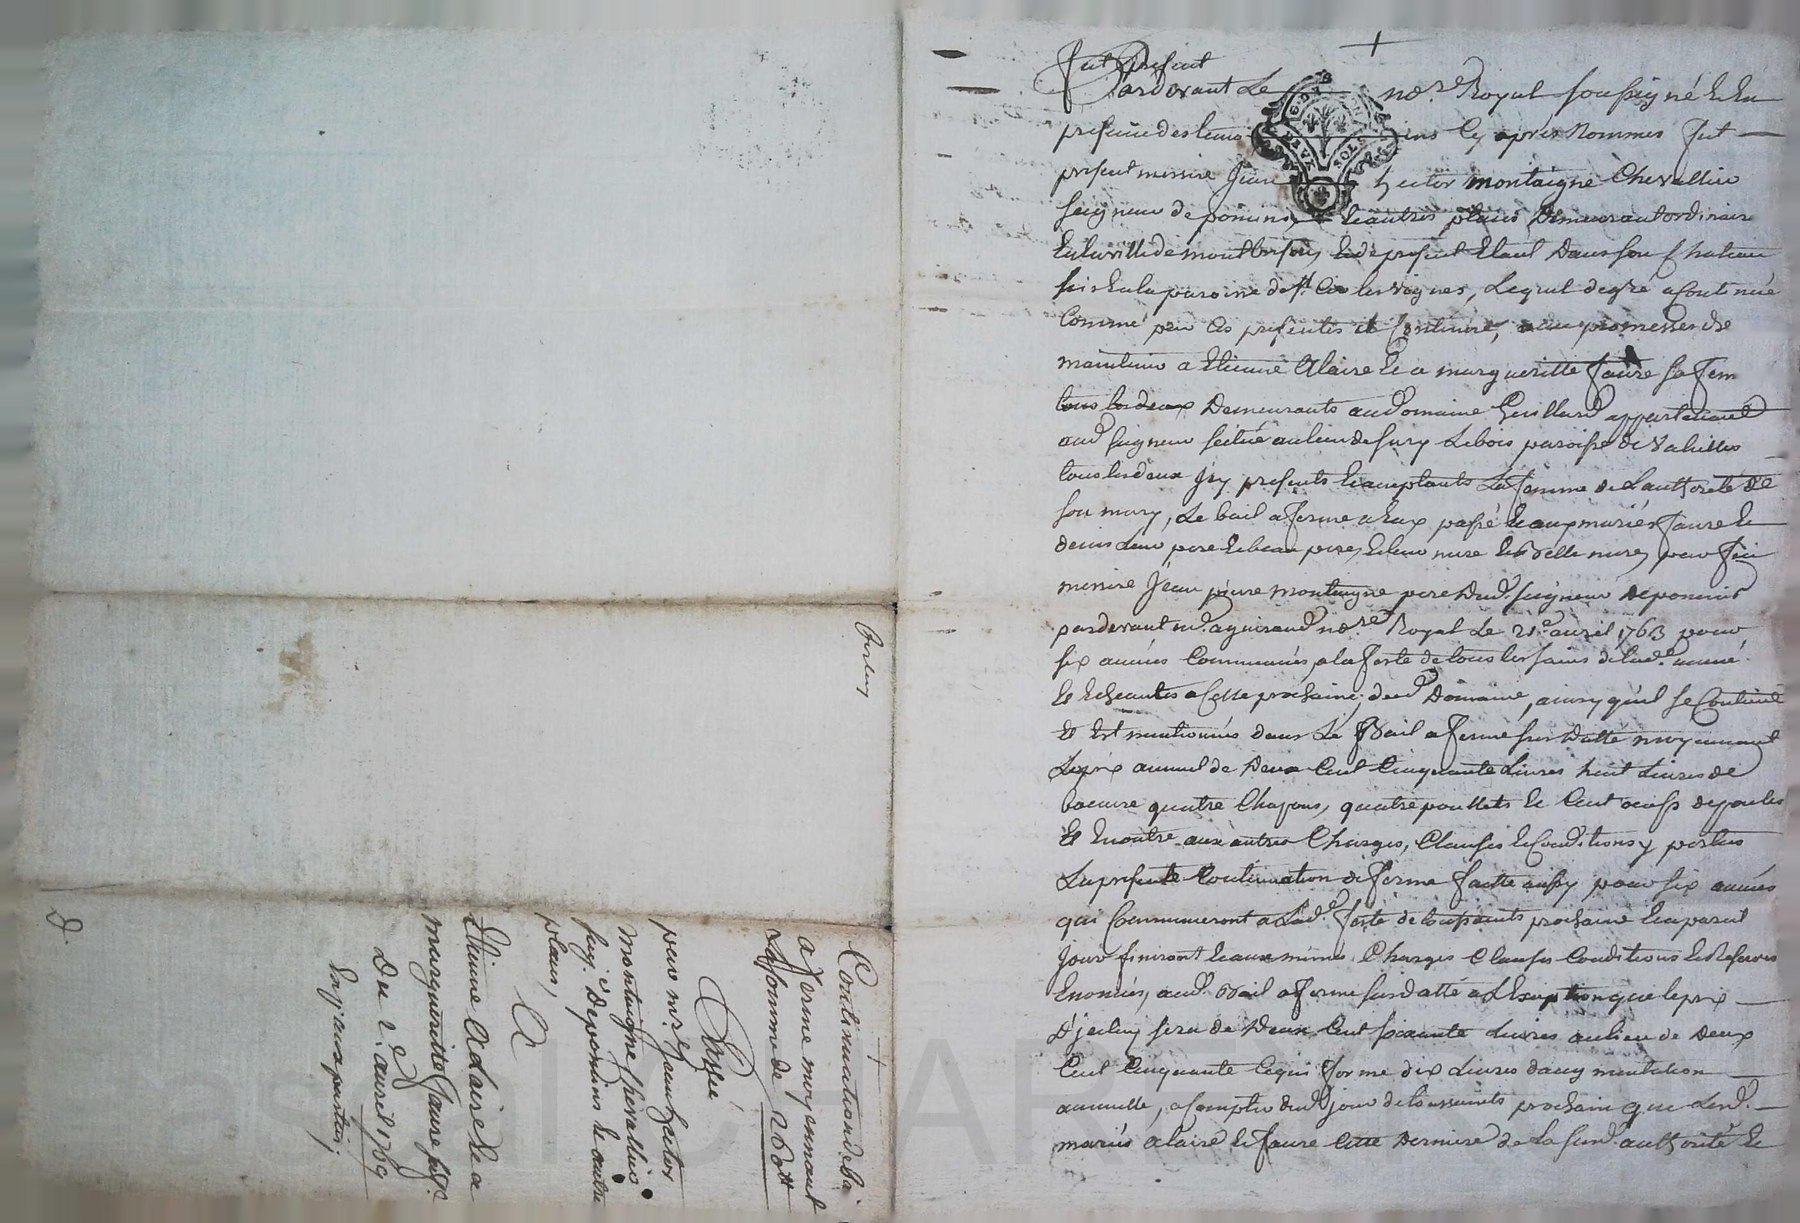 fut présent
Pardevant Le no.re Royal soussigné et En
présence des temoins cy après Nommés fut
présent messire Jean hector montaigne Chevallier
seigneur de poncins et autres places Demeurant ordinaire
En la ville de montbrison, et de présent Etant Dans son Chateau
sis En la paroisse de st. les vignes, Lequel de gré a continué
Comme par Ces présentes il Continue, avec promesse de
maintenir a Etienne Alaire et a margueritte faure sa fem
tous les deux Demeurants aud domaine appartenant
aud seigneur scitué au lieu de sury Le bois paroisse de Valeilles
tous les deux Icy présents et acceptants La femme de L'authorité de
son mary, Le bail a ferme a Eux passé et aux mariés faure et
denis Leur pere et beau pere, et leur mere et belle mere, par feu
messire Jean pierre montaigne pere dud. seigneur de poncins
pardevant me. aguiraud no.re Royal Le 21.e avril 1763 pour
six années Commencées a la feste de tous les saints de lad.e année
Et Echeantes a Celle prochaine, dud Domaine, ainsy qu'il se Contient
Et Est mentionnés dans Le Bail a ferme sus datté moyennant
Le prix annuel de Deux Cent Cinquante Livres huit Livres de
beurre quatre Chapons, quatre poullets et Cent oeufs de poules
Et En outre aux autres Charges, Clauses et Conditions y portées
La presente Continuation de ferme faitte aussy pour six années
qui Commenceront a Lad.e feste de toussaints prochaine Et a pareil
Jour finiront Et aux mêmes Charges Clauses Conditions Et Reserves
Enoncées, aud. Bail a ferme susdatté a L'Exception que le prix
D'jceluy sera de Deux Cent soixante Livres au lieu de Deux
Cent Cinquante Ce qui forme dix Livres d'augmentation
annuelle, a Compter dud jour de toussaints prochain que Lesd.
mariés alaire et faure Cette Derniere de La susd. authorité Et
Continuation de bail
a ferme moyennant
La somme de 260 tt
Passé
par mr. Jean hector
montaigne chevallier
seig.r De poncins et autre
places,
A
Etienne Alaire Et a
margueritte faure
Du 2.e avril 1769